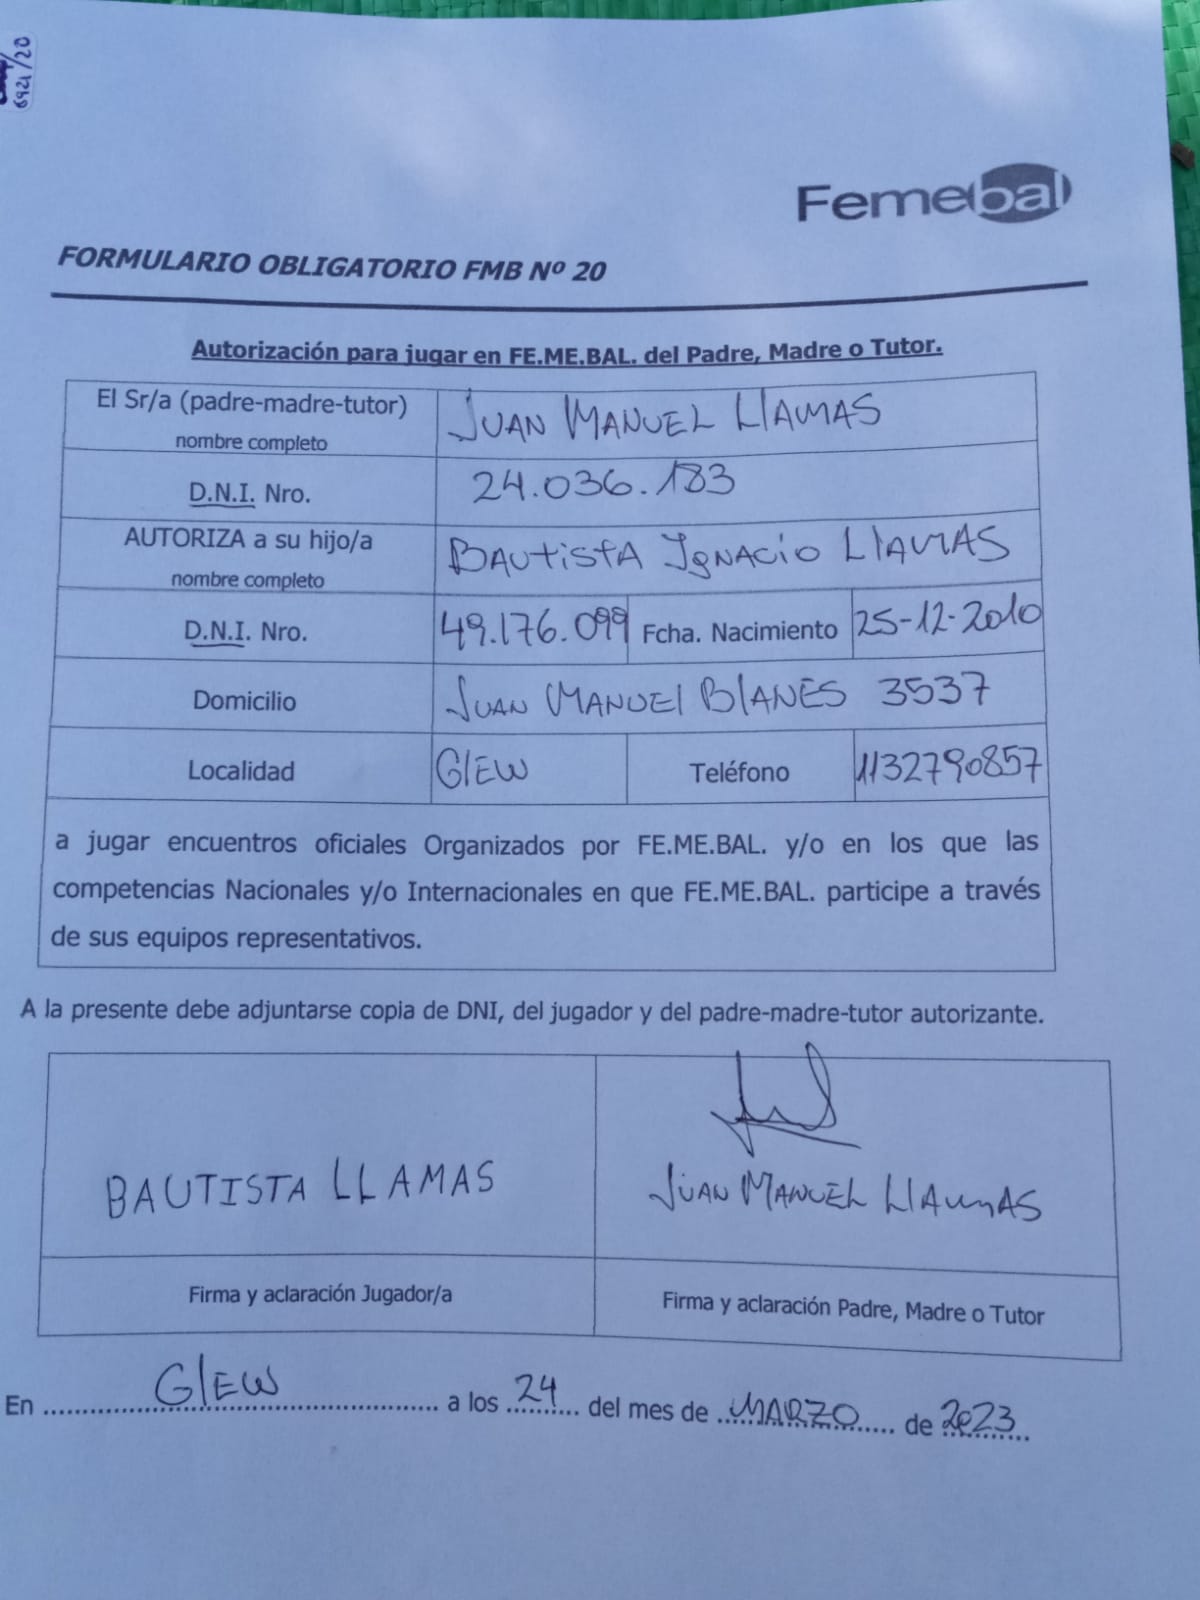 6921/20
Femebal
FORMULARIO OBLIGATORIO FMB Nº 20
Autorización para jugar en FE.ME.BAL. del Padre, Madre o Tutor.
El Sr/a (padre-madre-tutor) nombre completo JUAN MANUEL LlAMAS
D.N.I. Nro. 24.036.183
AUTORIZA a su hijo/a nombre completo BAUtistA IgNACIO LlAMAS
D.N.I. Nro. 49.176.099 Fcha. Nacimiento 25-12-2010
Domicilio JUAN MANUEl BlANES 3537
Localidad GlEW Teléfono 1132790857
a jugar encuentros oficiales Organizados por FE.ME.BAL. y/o en los que las
competencias Nacionales y/o Internacionales en que FE.ME.BAL. participe a través
de sus equipos representativos.
A la presente debe adjuntarse copia de DNI, del jugador y del padre-madre-tutor autorizante.
BAUTISTA LLAMAS JUAN MANUEL LlAMAS
Firma y aclaración Jugador/a Firma y aclaración Padre, Madre o Tutor
En GlEW a los 24 del mes de MARZO de 2023